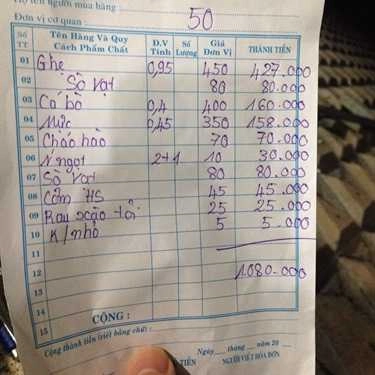 Họ tên người mua hàng:
Đơn vị cơ quan: 50
Số TT Tên Hàng Và Quy Cách Phẩm Chất Đ.V Tính Số Lượng Giá Đơn Vị THÀNH TIỀN
01 Ghẹ 0,95 450 427.000
02 Sò vạt 80 80.000
03 Cá bò 0,4 400 160.000
04 Mực 0,45 350 158.000
05 Cháo hào 70 70.000
06 N ngọt 2+1 10 30.000
07 Sò vạt 80 80.000
08 Cơm HS 45 45.000
09 Rau xào tỏi 25 25.000
10 K/nhỏ 5 5.000
11
12 1080.000
13
14
15 CỘNG:
Cộng thành tiền (viết bằng chữ):
Ngày tháng năm 20
TIỀN NGƯỜI VIẾT HÓA ĐƠN